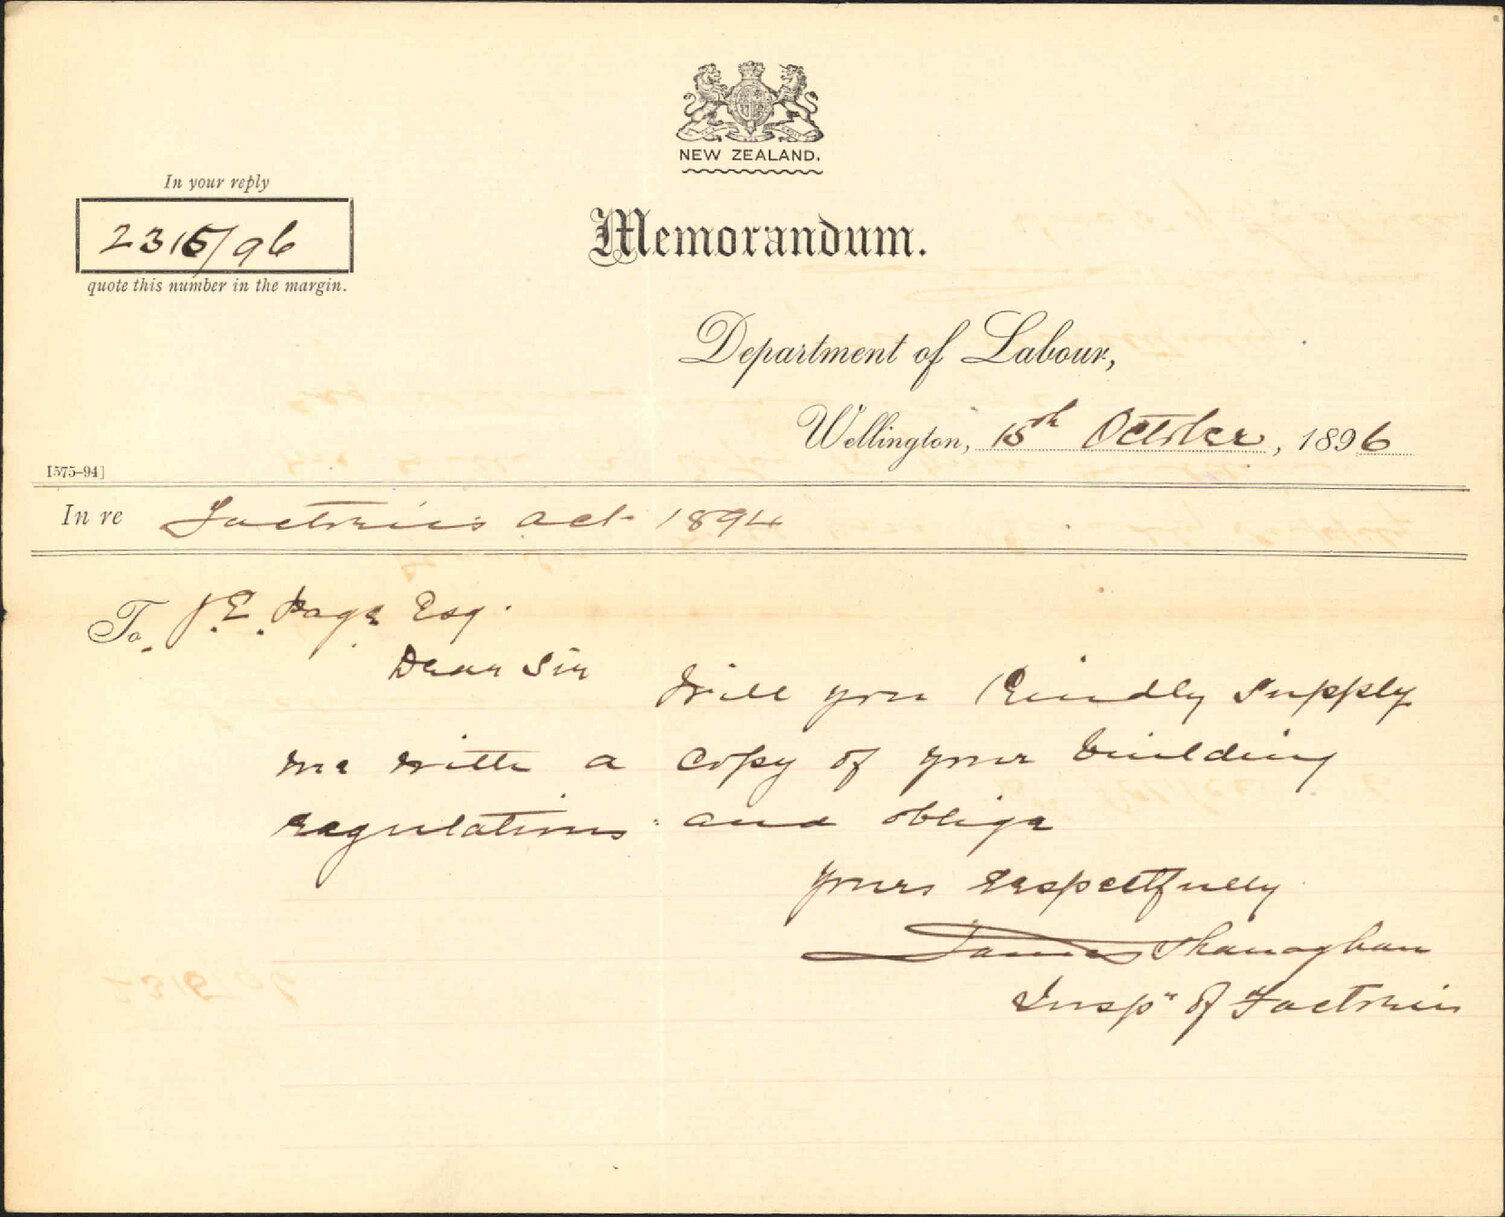 NEW ZEALAND.
In your reply
2315/96
quote this number in the margin.
Memorandum.
Department of Labour,
Wellington, 15th October, 1896
I575–94]
In re Factories Act 1894
To J. E. Page Esq.
Dear Sir
Will you Kindly Supply
me with a copy of your building
regulations and oblige
yours respectfully
James Shanaghan
Inspr of Factories